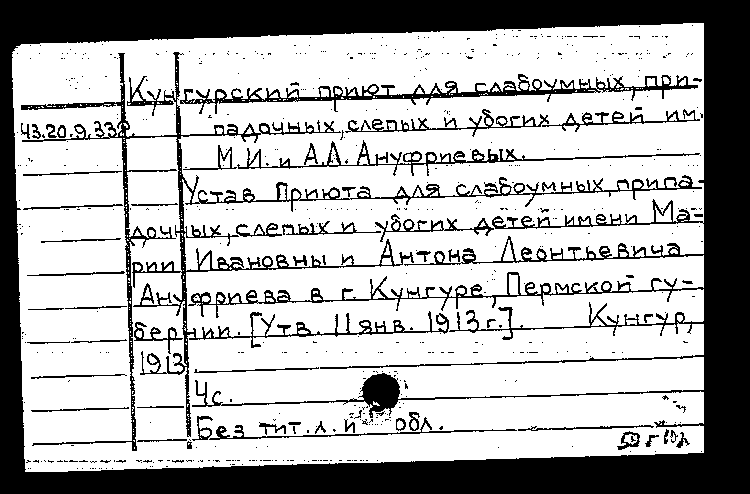 Кунгурский приют для слабоумных, при-
43.20.9.338. падочных, слепых и убогих детей им.
М.И. и А.Л. Ануфриевых.
Устав Приюта для слабоумных, припа-
дочных, слепых и убогих детей имени Ма-
рии Ивановны и Антона Леонтьевича
Ануфриева в г. Кунгуре, Пермской гу-
бернии. [Утв. 11 янв. 1913 г.]. Кунгур,
1913.
4с.
Без тит.л. и обл.